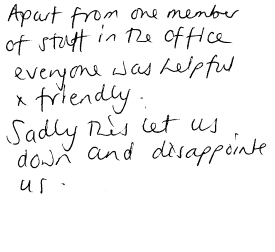 Apart from one member
of staff in the office
everyone was helpful
& friendly.
Sadly this let us
down and disappointe
us.